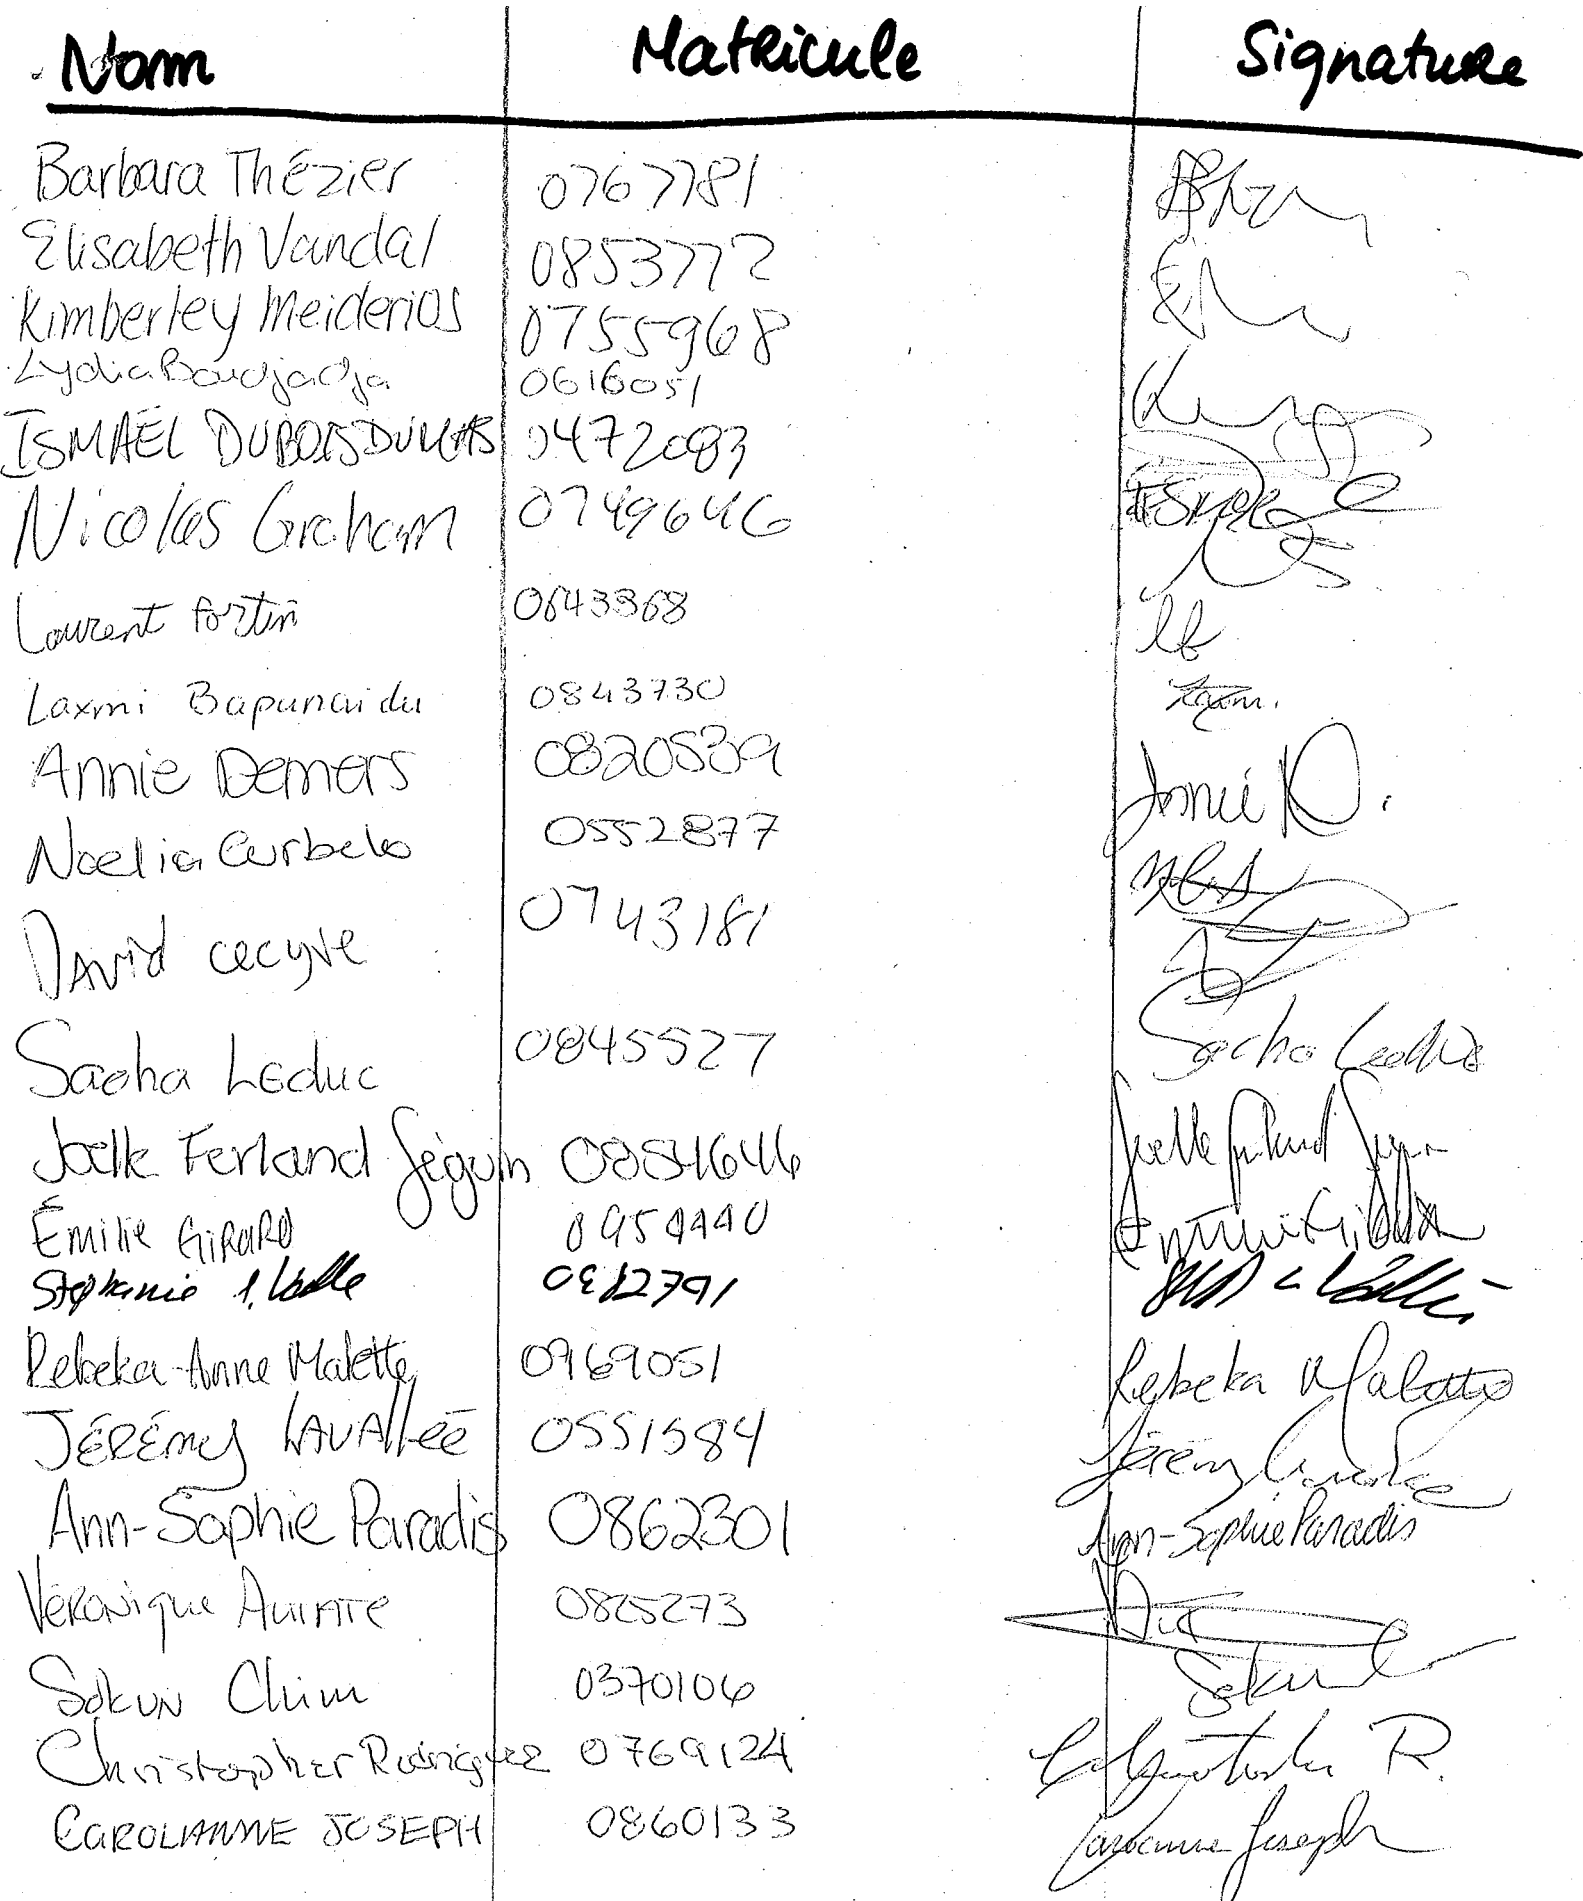 Nom Matricule Signature
Barbara Thézier 0767781
Élisabeth Vandal 0853772
Kimberley Meiderios 0755968
Lydia Boudjadja 0616051
ISMAËL DUBOIS DUMAS 0472083
Nicolas Graham 0749646
Laurent Fortin 0643368
Laxmi Bapunaidu 0843730 Laxmi.
Annie Demers 0820539 Annie D.
Noelia Curbelo 0552877
DAVID cecyre 0743181
Sacha Leduc 0845527 Sacha Leduc
Joelle Ferland Séguin Joelle Ferland Séguin
Émilie GIRARD
Stéphanie
Rebeka-Anne Malette 0969051 Rebeka Malette
JÉRÉMY LAVAllÉE 0551584 Jérémy Lavallée
Ann-Sophie Paradis 0862301 Ann-Sophie Paradis
VÉRONIQUE 0825273
Sokun Chim 0370106 Sokun
Christopher Rodriguez 0769124 Christopher R.
CAROLIANNE JOSEPH 0860133 Carolianne Joseph